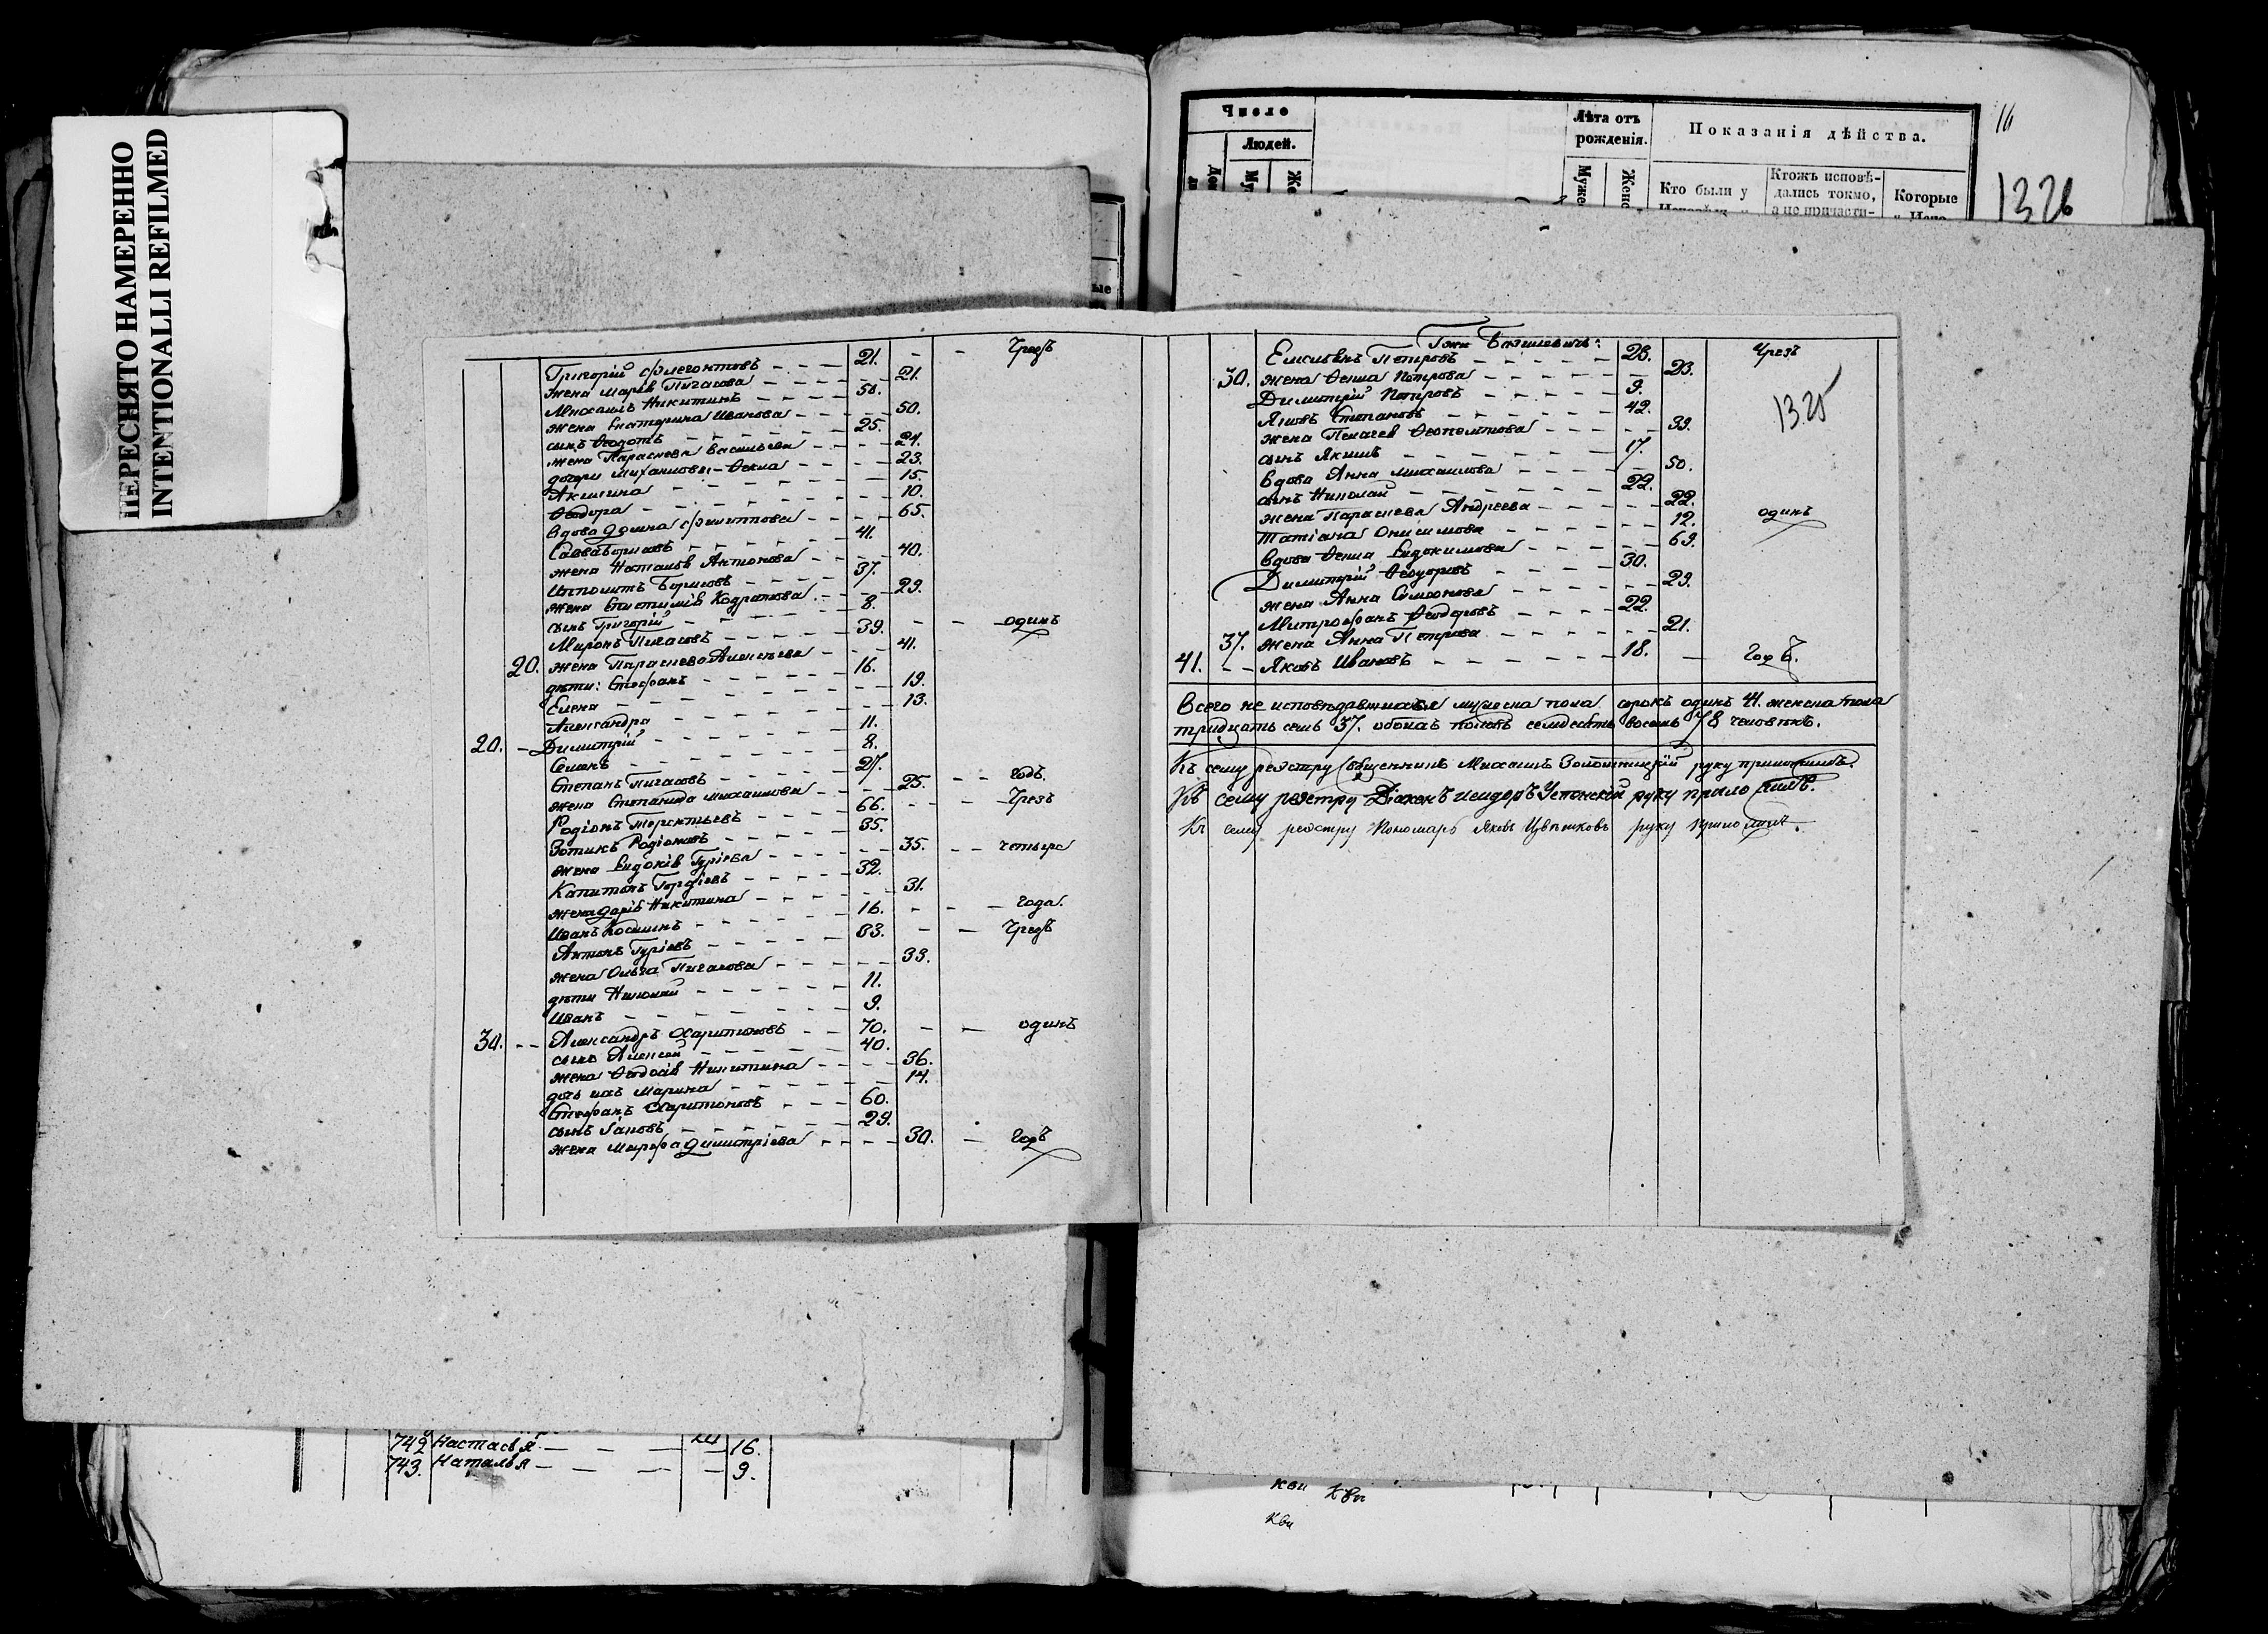 ПЕРЕСНЯТО НАМЕРЕННО
INTENTIONALLI REFILMED
Григорій Флегонтовъ - - - 21. - - Чрезъ
жена Марія Пигасова - - - 21.
Михаилъ Никитинъ - - - 50.
жена Екатерина Иванова - - - 50.
сынъ Ѳеодотъ - - - 25.
жена Параскева Васильева - - - 24.
дочери Михаиловы - Ѳекла - - - 23.
Акилина - - - 15.
Ѳеодора - - - 10.
вдова Домна Филиппова - - - 65.
Савва Борисовъ - - - 41.
жена Наталья Антонова - - - 40.
Ипполитъ Борисовъ - - - 37.
жена Епистимія Кодратова - - - 29.
сынъ Григорій - - - 8.
Миронъ Пигасовъ - - - 39. - - одинъ
20. жена Параскева Алексѣева - - - 41.
дѣти: Стефанъ - - - 16.
Елена - - - 19.
Александра - - - 13.
20. - Димитрій - - - 11.
Семенъ - - - 8.
Степанъ Пигасовъ - - - 27. - - годъ.
жена Степанида Михаилова - - - 25.
Родіонъ Терентьевъ - - - 66. - - Чрезъ
Зотикъ Родіоновъ - - - 35.
жена Евдокія Гуріева - - - 35. - - четыре
Капитонъ Гордіевъ - - - 32.
жена Дарія Никитина - - - 31.
Иванъ Косминъ - - 16. - - - года.
Антонъ Гуріевъ - - - 33. - - Чрезъ
жена Ольга Пигасова - - - 33.
дѣти Николай - - - 11.
Иванъ - - - 9.
30. - - Александръ Харитоновъ - - 70. - - одинъ
сынъ Алексій - - - 40.
жена Ѳеодосія Никитина - - - 36.
дочь ихъ Марина - - - 14.
Стефанъ Харитоновъ - - - 60.
сынъ Іаковъ - - - 29.
жена Марфа Димитріева - - - 30. - годъ
742 Настасья - - - 16.
743. Наталья - - - 9.
Число
Людей.
Лѣта отъ рожденія.
Показанія дѣйства.
Кто были у
Ктожъ исповѣ-
дались токмо,
а не причасти-
Которые
16
1326
1325
Емельянъ Петровъ - - - 23. Чрезъ
30. жена Ѳекла Петрова - - - 23.
Димитрій Петровъ - - - 9.
Яковъ Степановъ - - - 42.
жена Пелагея Ѳеопемптова - - - 39.
сынъ Якимъ - - - 17.
вдова Анна Михаилова - - - 50.
сынъ Николай - - - 22.
жена Параскева Андреева - - - 22.
Татіана Онисимова - - - 12. одинъ
вдова Ѳекла Евдокимова - - - 69.
Димитрій Ѳеодоровъ - - - 30.
жена Анна Симеонова - - - 29.
Митрофанъ Ѳеодоровъ - - - 22.
37. жена Анна Петрова - - - 21.
41. - - Яковъ Ивановъ - - - 18. - годъ.
Всего не исповѣдавшихся мужеска пола сорокъ одинъ 41. женска пола
тридцать семь 37. обоихъ половъ семдесятъ восемь 78 человѣкъ.
Къ сему реэстру Священникъ Михаилъ Золотницкій руку приложилъ.
Къ сему реэстру Діаконъ Исидоръ Успенскій руку приложилъ.
Къ сему реэстру Пономарь Яковъ Цвѣтковъ руку приложилъ.